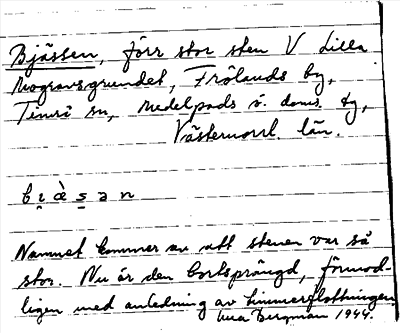 Bjässen, förr stor sten V Lilla
Mogravsgrundet, Frölands by,
Timrå sn, Medelpads ö. doms. tg,
Västernorrl. län.
Namnet kommer av att stenen var så
stor. Nu är den bortsprängd, förmod-
ligen med anledning av timmerflottningen
Bergman 1944.